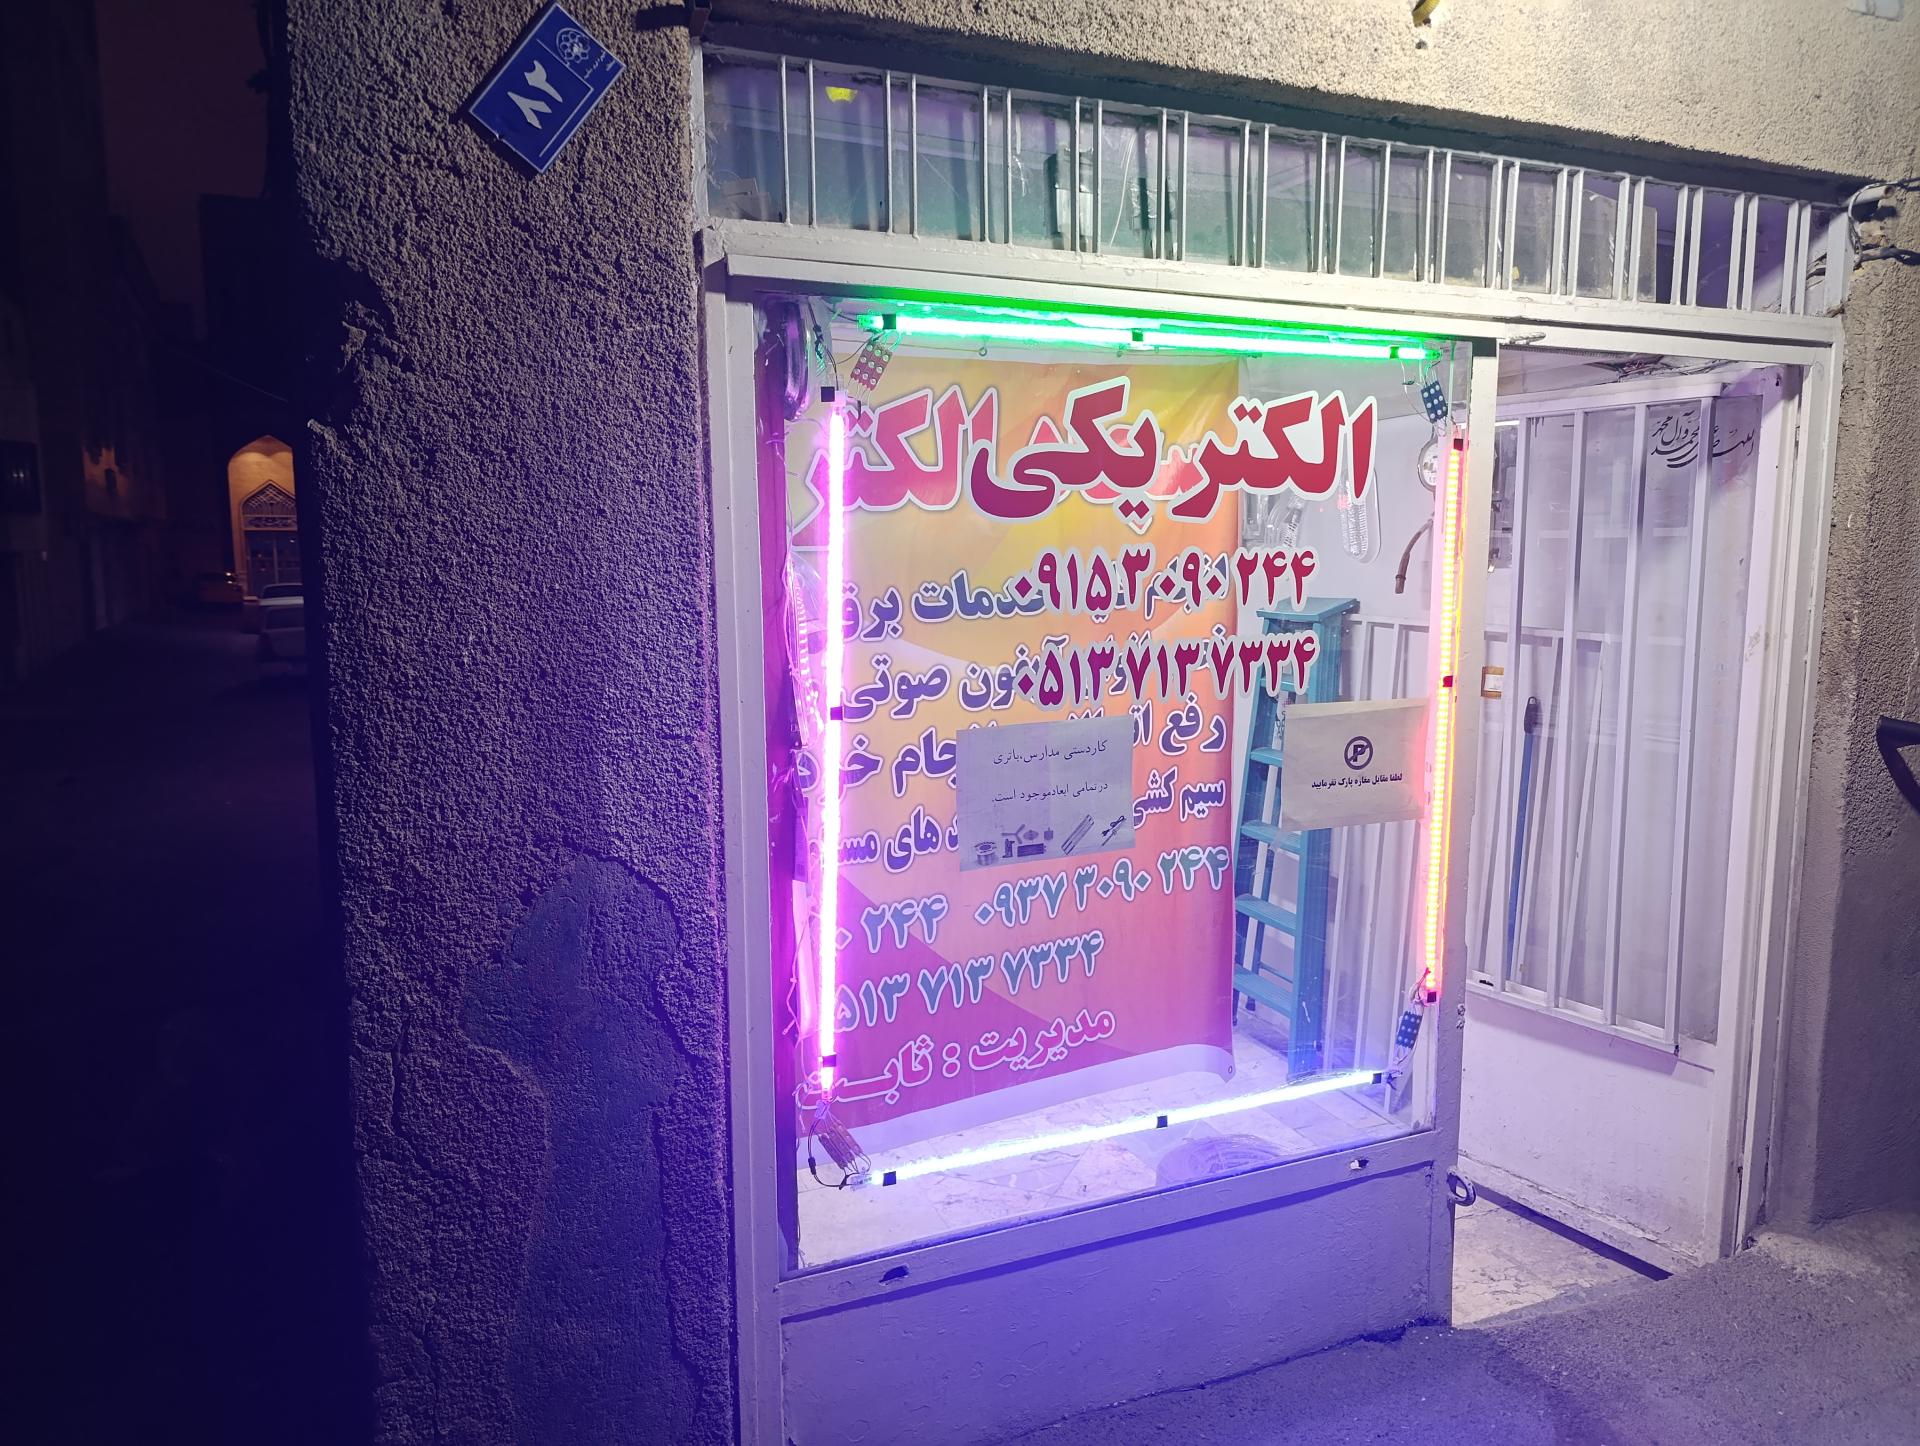 ۸۲
الکتریکی
الکتر
۰۹۱۵۳۰۹۰۲۴۴
۰۵۱۳۷۱۳۷۳۳۴
خدمات برق
صوتی
رفع
انجام
سیم کشی
های
کاردستی مدارس،باتری
درتمامی ابعادموجود است.
لطفا مقابل مغازه پارک نفرمایید
۰۹۳۷ ۳۰۹۰ ۲۴۴
۲۴۴
۵۱۳ ۷۱۳ ۷۳۳۴
مدیریت : ثابت
اللهم صل علی محمد وآل محمد